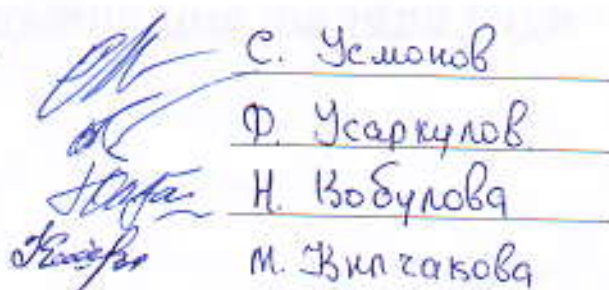 С. Усмонов
Ф. Усаркулов
Н. Кобулова
М. Кипчакова